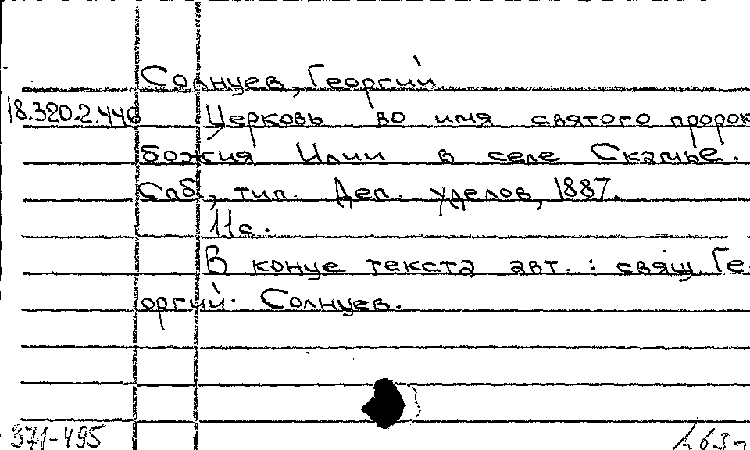 Солнцев, Георгий
18.320.2.446 Церковь во имя святого пророк
божия Илии в селе Скамье.
Спб, тип. Деп. уделов, 1887.
11с.
В конце текста авт.: свящ. Ге-
оргий Солнцев.
371-495